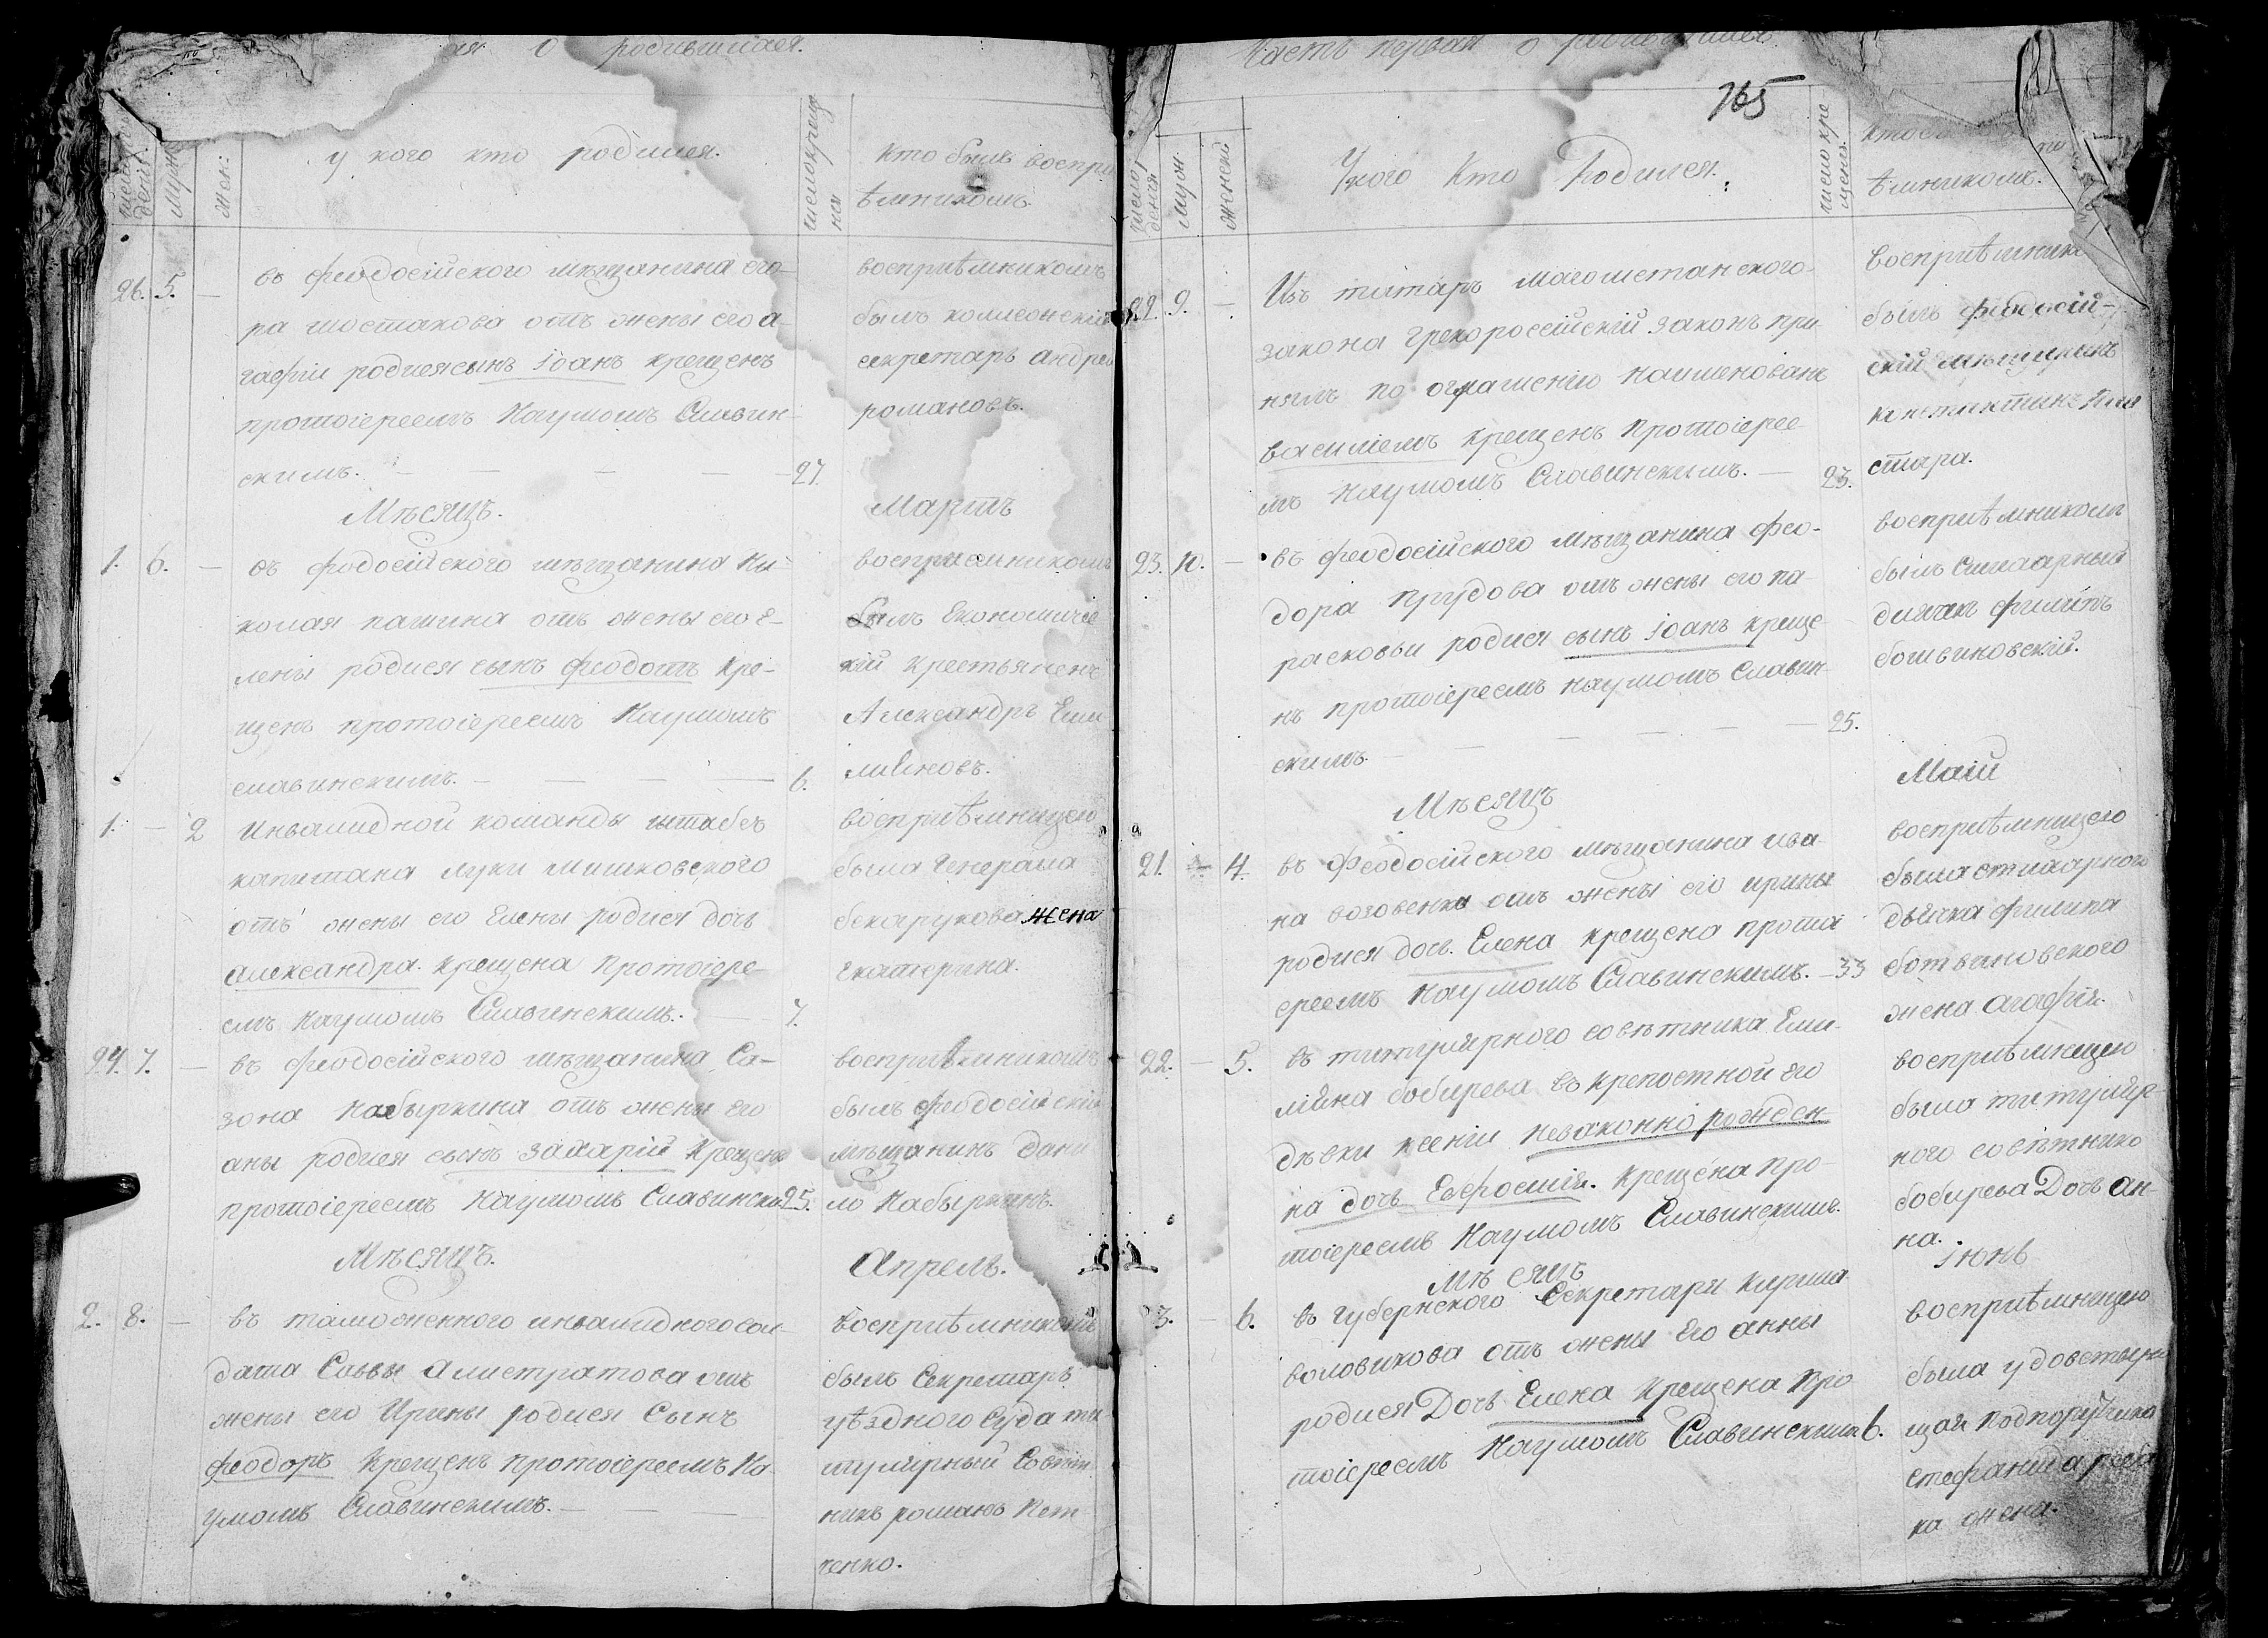 ая о родившихся.
число рож
дения
Муж:
Жен:
у кого кто родился.
число креще
ния
кто былъ воспри
ѣмникомъ.
26. 5. — въ феодосійского мѣщанина его-
ра шостакова отъ жены его а-
гафіи родился сынъ іоанъ крещенъ
протоіереемъ Наумомъ Славин-
скимъ. — — — — 27.
воспріѣмникомъ
былъ колежскій
секретарь андрей
романовъ.
Мѣсяцъ. Мартъ
1. 6. — въ фодосійского мѣщанина Ни-
колая пашина отъ жены его е-
лены родися сынъ феодотъ кре-
щенъ протоіереемъ Наумомъ
славинскимъ. — — — — 6.
восприемникомъ
былъ Економиче
кій крестьяненъ
Александръ Еми
ліяновъ.
1. — 2 Инвалидной команды штабсъ
капитана луки Мишковского
отъ жены его Елены родися дочь
александра. крещена протоіере-
емъ Наумомъ Славинскимъ. — 7.
воспріѣмницею
была Генерала
бекарукова жена
екатерина.
24. 7. — въ феодосійского мѣщанина Са-
зона Набыркина отъ жены его
аны родися сынъ захарій крещенъ
протоіереемъ Наумомъ Славински 25.
воспріѣмникомъ
былъ феодосійскій
мѣщанинъ дани
ло Набыркинъ.
Мѣсяцъ. Апрель.
2. 8. — въ таможенного инвалидного сол-
дата Савы Алистратова отъ
жены его Ирины родися Сынъ
феодоръ крещенъ протоіереемъ На-
умомъ Славинскимъ. — —
воспріѣмникомъ
былъ Секретарь
уѣздного Суда ти-
тулярный Совѣт
никъ романъ Пет
ченко.
Часть первая о родившихся.
765
число
денія
муж.
женск
У кого Кто Родился.
число кре-
щенія
кто
ѣмникомъ.
22. 9. — Изъ татаръ магометанского
закона грекороссійскій законъ при
нялъ по оглашеніи наименованъ
василіемъ крещенъ Протоіерее-
мъ Наумомъ Славинскимъ. — 23.
Воспріѣмнико
былъ феодосій-
скій мѣщанинъ
стара.
23. 10. — въ феодосійского мѣщанина фео-
дора прудова отъ жены его па-
расковьи родися сынъ іоанъ креще
нъ протоіереемъ наумомъ Славин-
скимъ. — — — — — 25.
воспріѣмникомъ
былъ Стихарный
дьячекъ филипъ
ботвиновскій.
Мѣсяцъ Маій
21. — 4. въ Феодосійского мѣщанина ива-
на возовенка отъ жены его ирины
родися дочь Елена крещена прото
ереемъ Наумомъ Славинскимъ. — 33
воспріѣмницею
была стихарного
дьячка филипа
ботвиновского
жена агафія.
22. — 5. въ титулярного совѣтника Еми-
ліяна бобирева въ крепостной его
дѣвки ксеніи незаконно рожден-
на дочь Евфросинія. крещена про-
тоіереемъ Наумомъ Славинскимъ.
воспріѣмницею
была титуляр-
ного совѣтника
бобирева Дочь Ан-
на.
Мѣсяцъ іюнь
3. — 6. въ Губернского Секретаря кирила
воловикова отъ жены его анны
родися Дочь Елена крещена про
тоіереемъ Наумомъ Славинскимъ 6.
воспріѣмницею
была удовствую
щая подпорутчика
стефанида
ка жена.